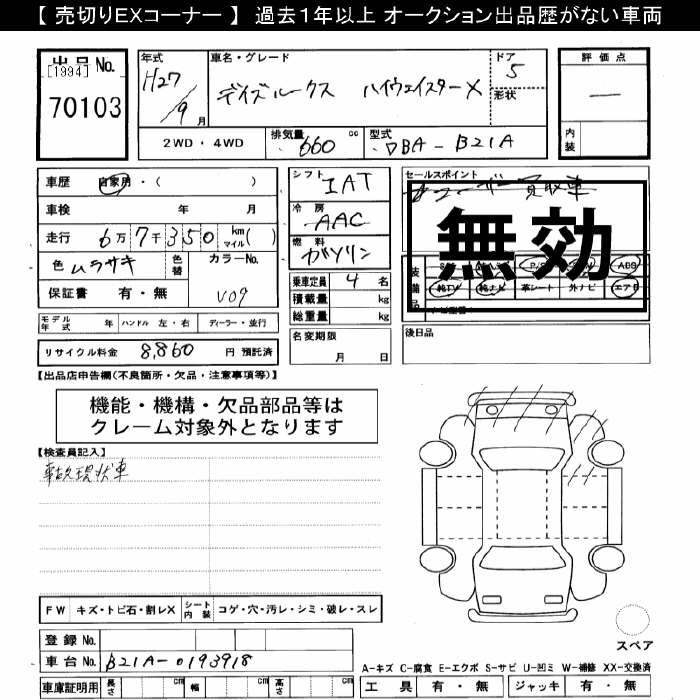 【 売切りEXコーナー 】 過去1年以上 オークション出品歴がない車両
出品 No.
[1994]
70103
年式
H27
/9 月
車名・グレード
デイズルークス ハイウェイスターX
ドア
5
形状
評価点
―
内装
2WD ・ 4WD
排気量 660 cc
型式 DBA - B21A
車歴 自家用・( )
車検 年 月
走行 6万 7千 350 km マイル ( )
色 ムラサキ 色替 カラーNo.
V09
保証書 有・無
シフト IAT
冷房 AAC
燃料 ガソリン
乗車定員 4 名
積載量 kg
総重量 kg
セールスポイント
買取車
無効
装備品
P/S ABS
純TV 純ナビ 革シート 外ナビ エアB
モデル年式 年 ハンドル 左・右 ディーラー・並行
リサイクル料金 8,860 円 預託済
名変期限
月 日
後日品
【出品店申告欄(不良箇所・欠品・注意事項等)】
機能・機構・欠品部品等は
クレーム対象外となります
【検査員記入】
事故現状車
FW キズ・トビ石・割レX シート内装 コゲ・穴・汚レ・シミ・破レ・スレ
スペア
登録 No.
車台 No. B21A-0193918
A-キズ C-腐食 E-エクボ S-サビ U-凹ミ W-補修 XX-交換済
車庫証明用 長さ cm 幅 cm 高さ cm
工具 有・無 ジャッキ 有・無